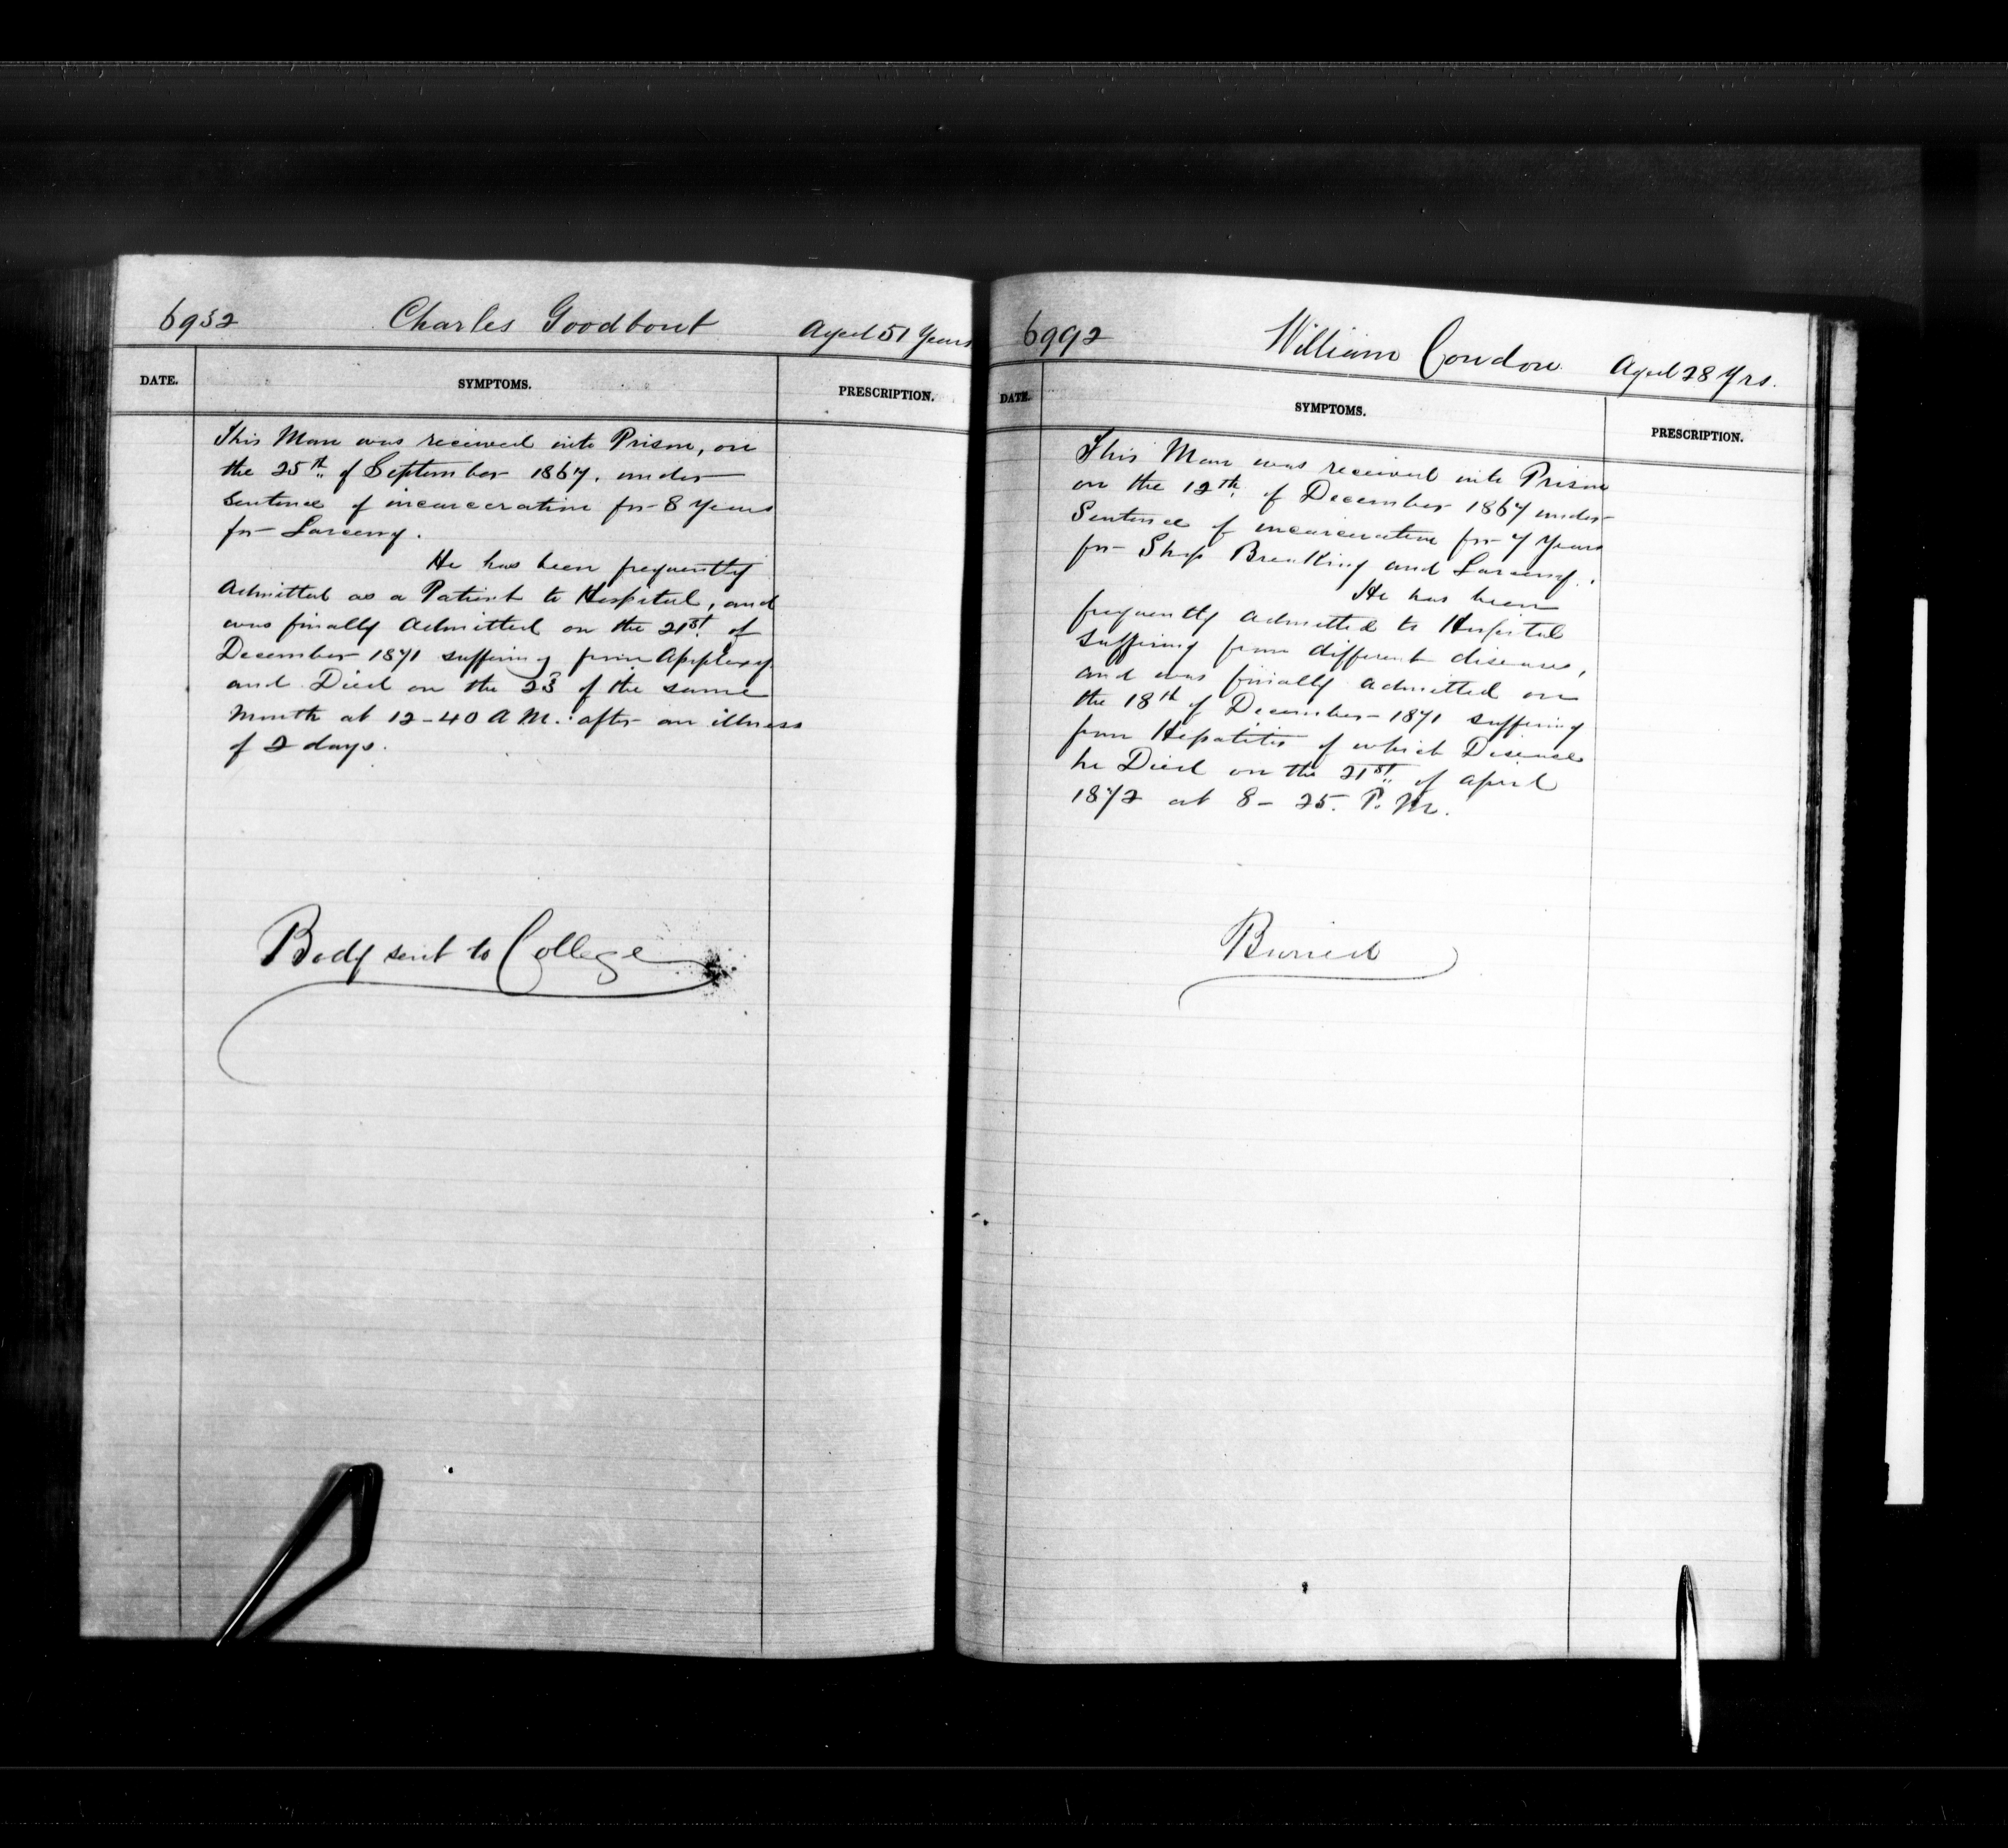 6932 Charles Goodbout Aged 51 Years
DATE. SYMPTOMS. PRESCRIPTION.
This Man was received into Prison, on
the 25th of September 1867. under
Sentence of incarceration for 8 Years
for Larceny.
He has been frequently
Admitted as a Patient to Hospital, and
was finally Admitted on the 21st of
December 1871 suffering from Apoplexy
and Died on the 23 of the same
Month at 12-40 A M. after an illness
of 2 days.
Body sent to College
6992 William Condon Aged 28 Yrs.
DATE. SYMPTOMS. PRESCRIPTION.
This Man was received into Prison
on the 12th of December 1867 under
Sentence of incarceration for 7 Years
for Shop Breaking and Larceny.
He has been
frequently admitted to Hospital
suffering from different diseases,
and was finally admitted on
the 18th of December 1871 suffering
from Hepatitis of which Disease
he Died on the 21st of April
1872 at 8-25. P. M.
Buried